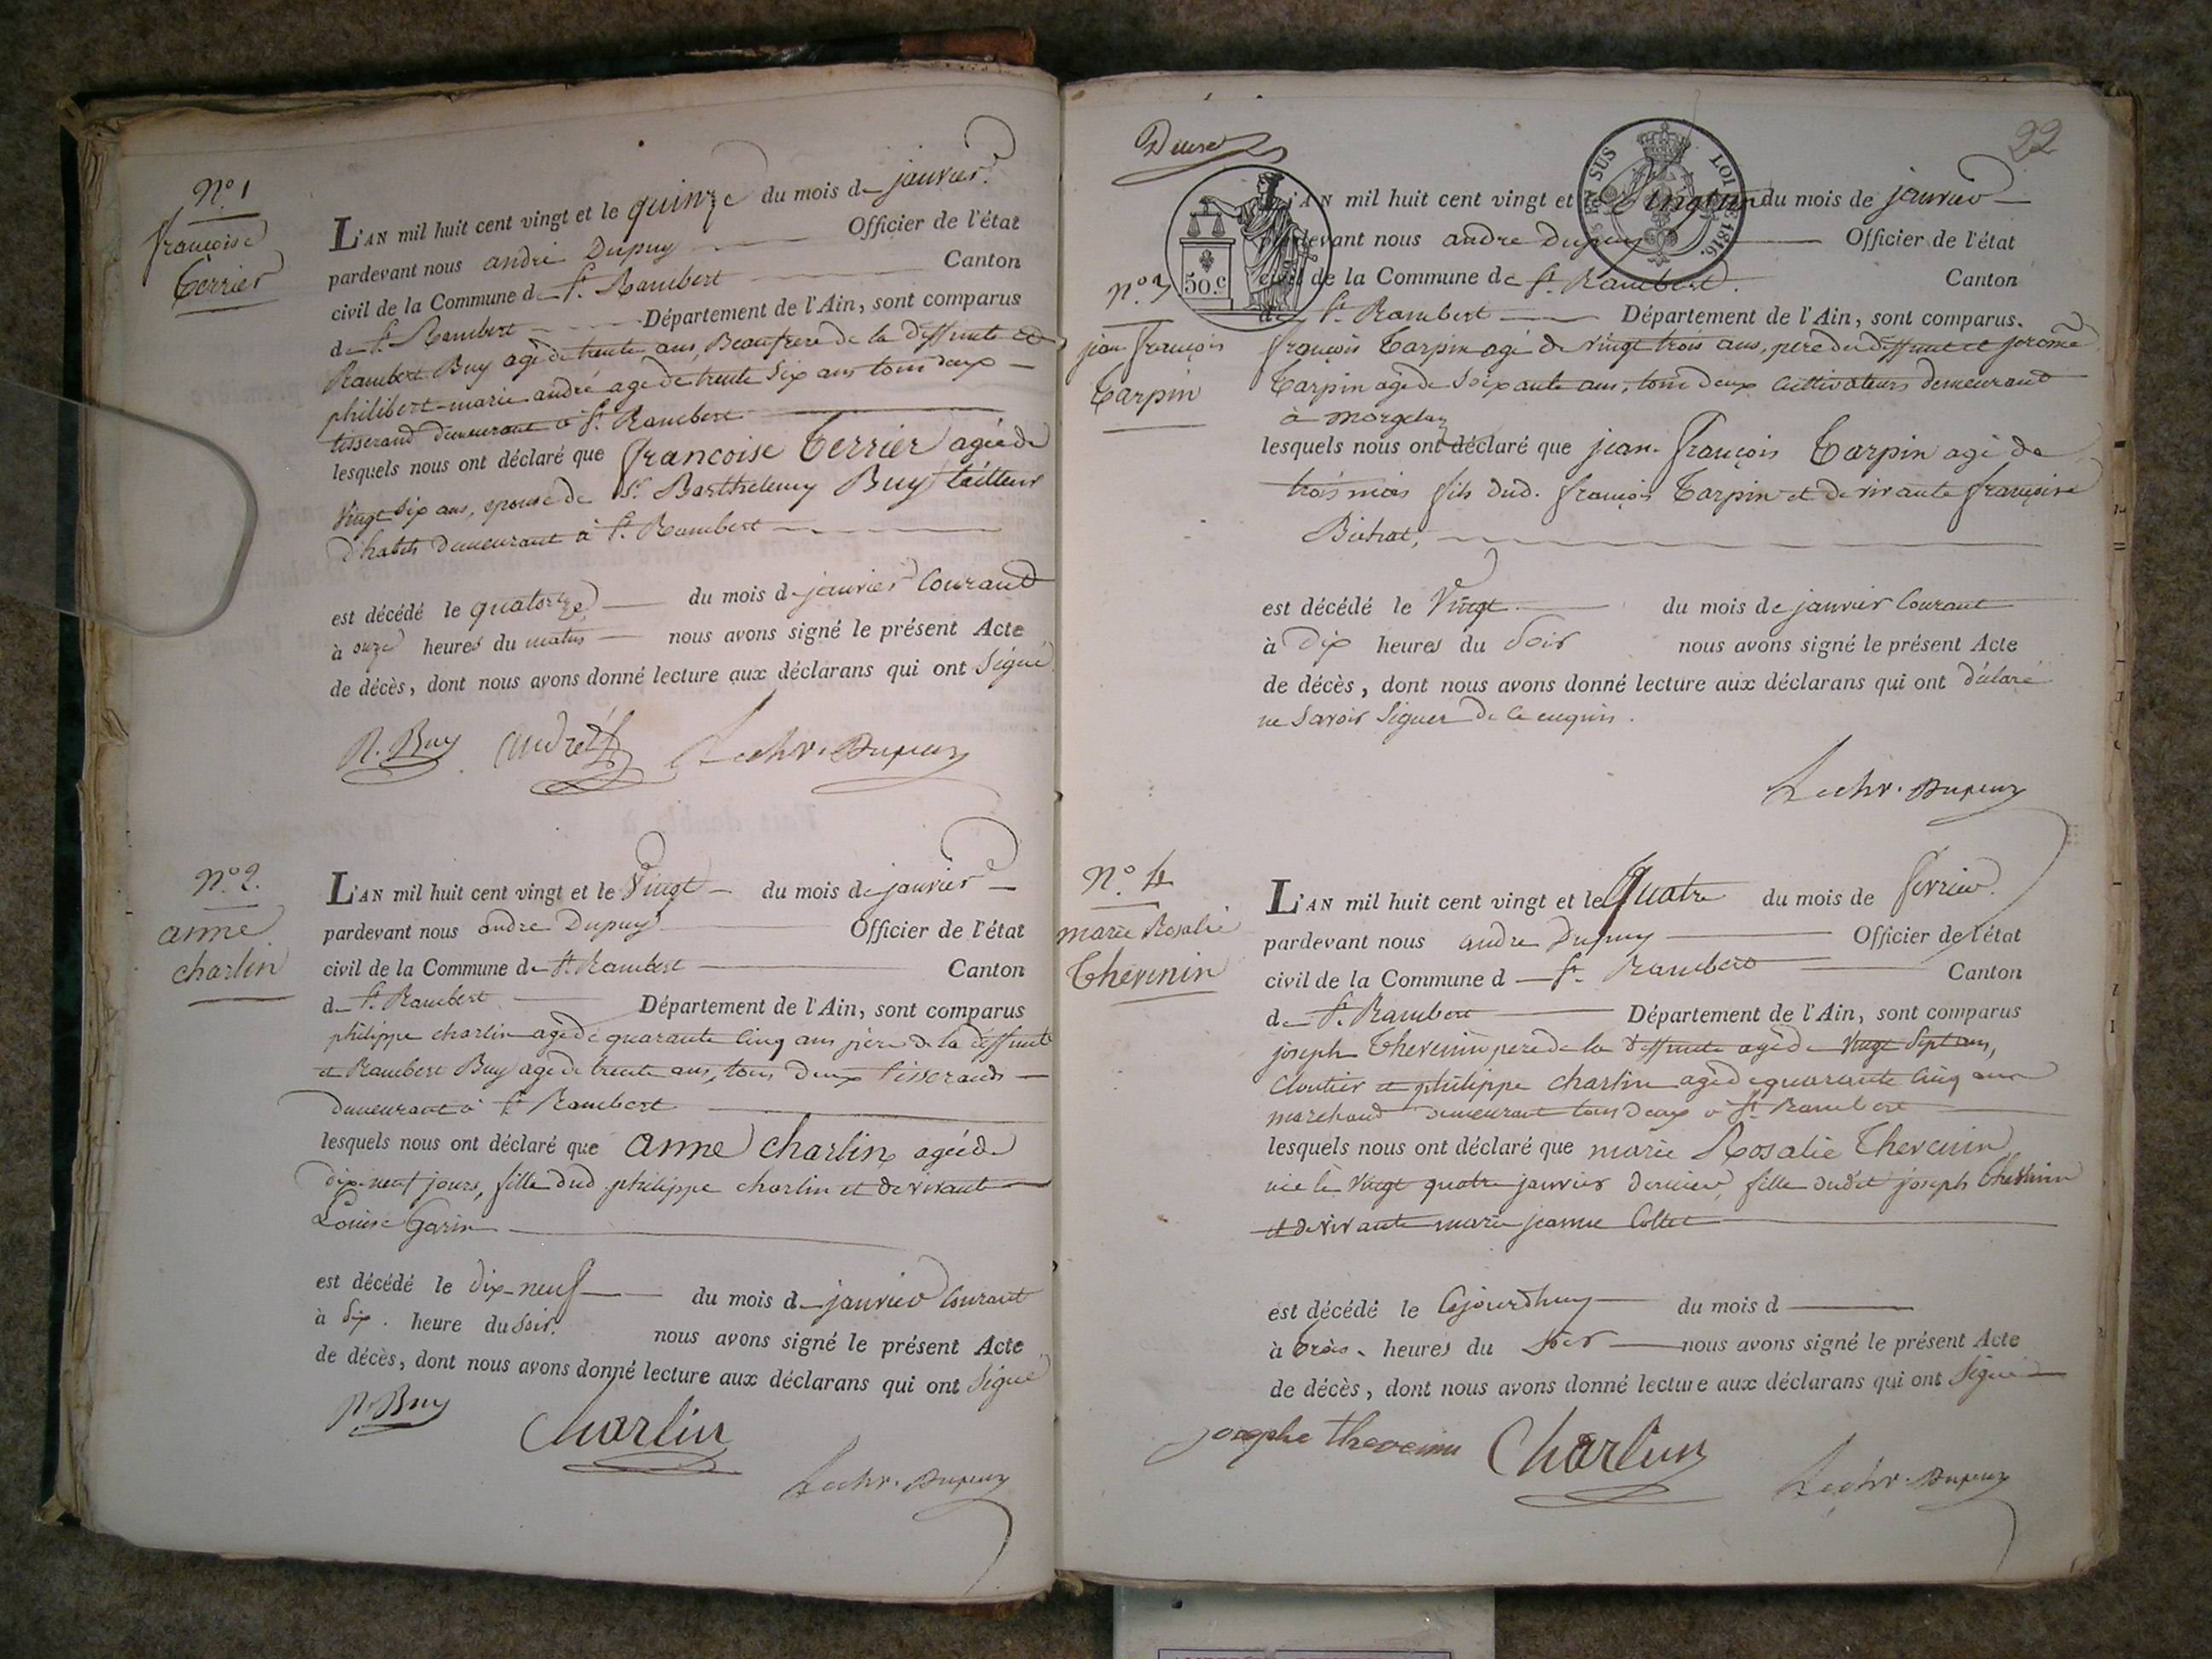 N.o 1
françoise
Terrier
L'AN mil huit cent vingt et le quinze du mois de janvier
pardevant nous andré Dupuy Officier de l'état
civil de la Commune de St. Rambert Canton
de St. Rambert Département de l'Ain, sont comparus
Rambert Buy agé de trente ans, Beaufrere de la deffunte et
philibert-marie andré agé de trente Six ans tous deux
tisserand demeurant à St. Rambert
lesquels nous ont déclaré que francoise Terrier agée de
Vingt Six ans, epouse de Sr. Barthelemy Buy tailleur
d'habits demeurant à St. Rambert
est décédé le quatorze du mois de janvier Courant
à onze heures du matin nous avons signé le présent Acte
de décès, dont nous avons donné lecture aux déclarans qui ont Signé
R. Buy andré Dupuy
N.o 2.
anne
charlin
L'AN mil huit cent vingt et le Vingt du mois de janvier
pardevant nous andre Dupuy Officier de l'état
civil de la Commune de St. Rambert Canton
de St. Rambert Département de l'Ain, sont comparus
philippe charlin agé de quarante Cinq ans père de la deffunte
et Rambert Buy agé de trente ans, tous deux tisserands
demeurant à St. Rambert
lesquels nous ont déclaré que anne charlin agée de
dix-neuf jours, fille dud. philippe charlin et de vivante
Louise Garin
est décédé le dix-neuf du mois de janvier Courant
à Six heure du Soir. nous avons signé le présent Acte
de décès, dont nous avons donné lecture aux déclarans qui ont Signé
R. Buy Charlin Dupuy
22
SUS LOI 1816.
50.c
N.o 3
jean françois
Tarpin
L'AN mil huit cent vingt et le Vingt un du mois de janvier
pardevant nous andre Dupuy Officier de l'état
civil de la Commune de St. Rambert Canton
de St. Rambert Département de l'Ain, sont comparus.
françois Tarpin agé de vingt trois ans, pere du deffunt et jerome
Tarpin agé de Soixante ans, tous deux Cultivateurs demeurant
à Morgelaz
lesquels nous ont déclaré que jean-françois Tarpin agé de
trois mois fils dud. françois Tarpin et de vivante françoise
est décédé le Vingt du mois de janvier Courant
à Dix heures du Soir nous avons signé le présent Acte
de décès, dont nous avons donné lecture aux déclarans qui ont déclaré
ne Savoir Signer de ce enquis.
Dupuy
N.o 4
marie Rosalie
Thevenin
L'AN mil huit cent vingt et le Quatre du mois de fevrier.
pardevant nous andre Dupuy Officier de l'état
civil de la Commune d St. Rambert Canton
de St. Rambert Département de l'Ain, sont comparus
joseph Thevenin pere de la deffunte agé de Vingt Sept ans,
Cloutier et philippe charlin agé de quarante Cinq ans
marchand demeurant tous deux à St. Rambert
lesquels nous ont déclaré que marie Rosalie Thevenin
née le Vingt quatre janvier dernier, fille dudit joseph Thevenin
et de vivante marie jeanne Collet
est décédé le Cejourdhuy du mois d
à trois heures du Soir nous avons signé le présent Acte
de décès, dont nous avons donné lecture aux déclarans qui ont Signé
josephe thevenin Charlin Dupuy